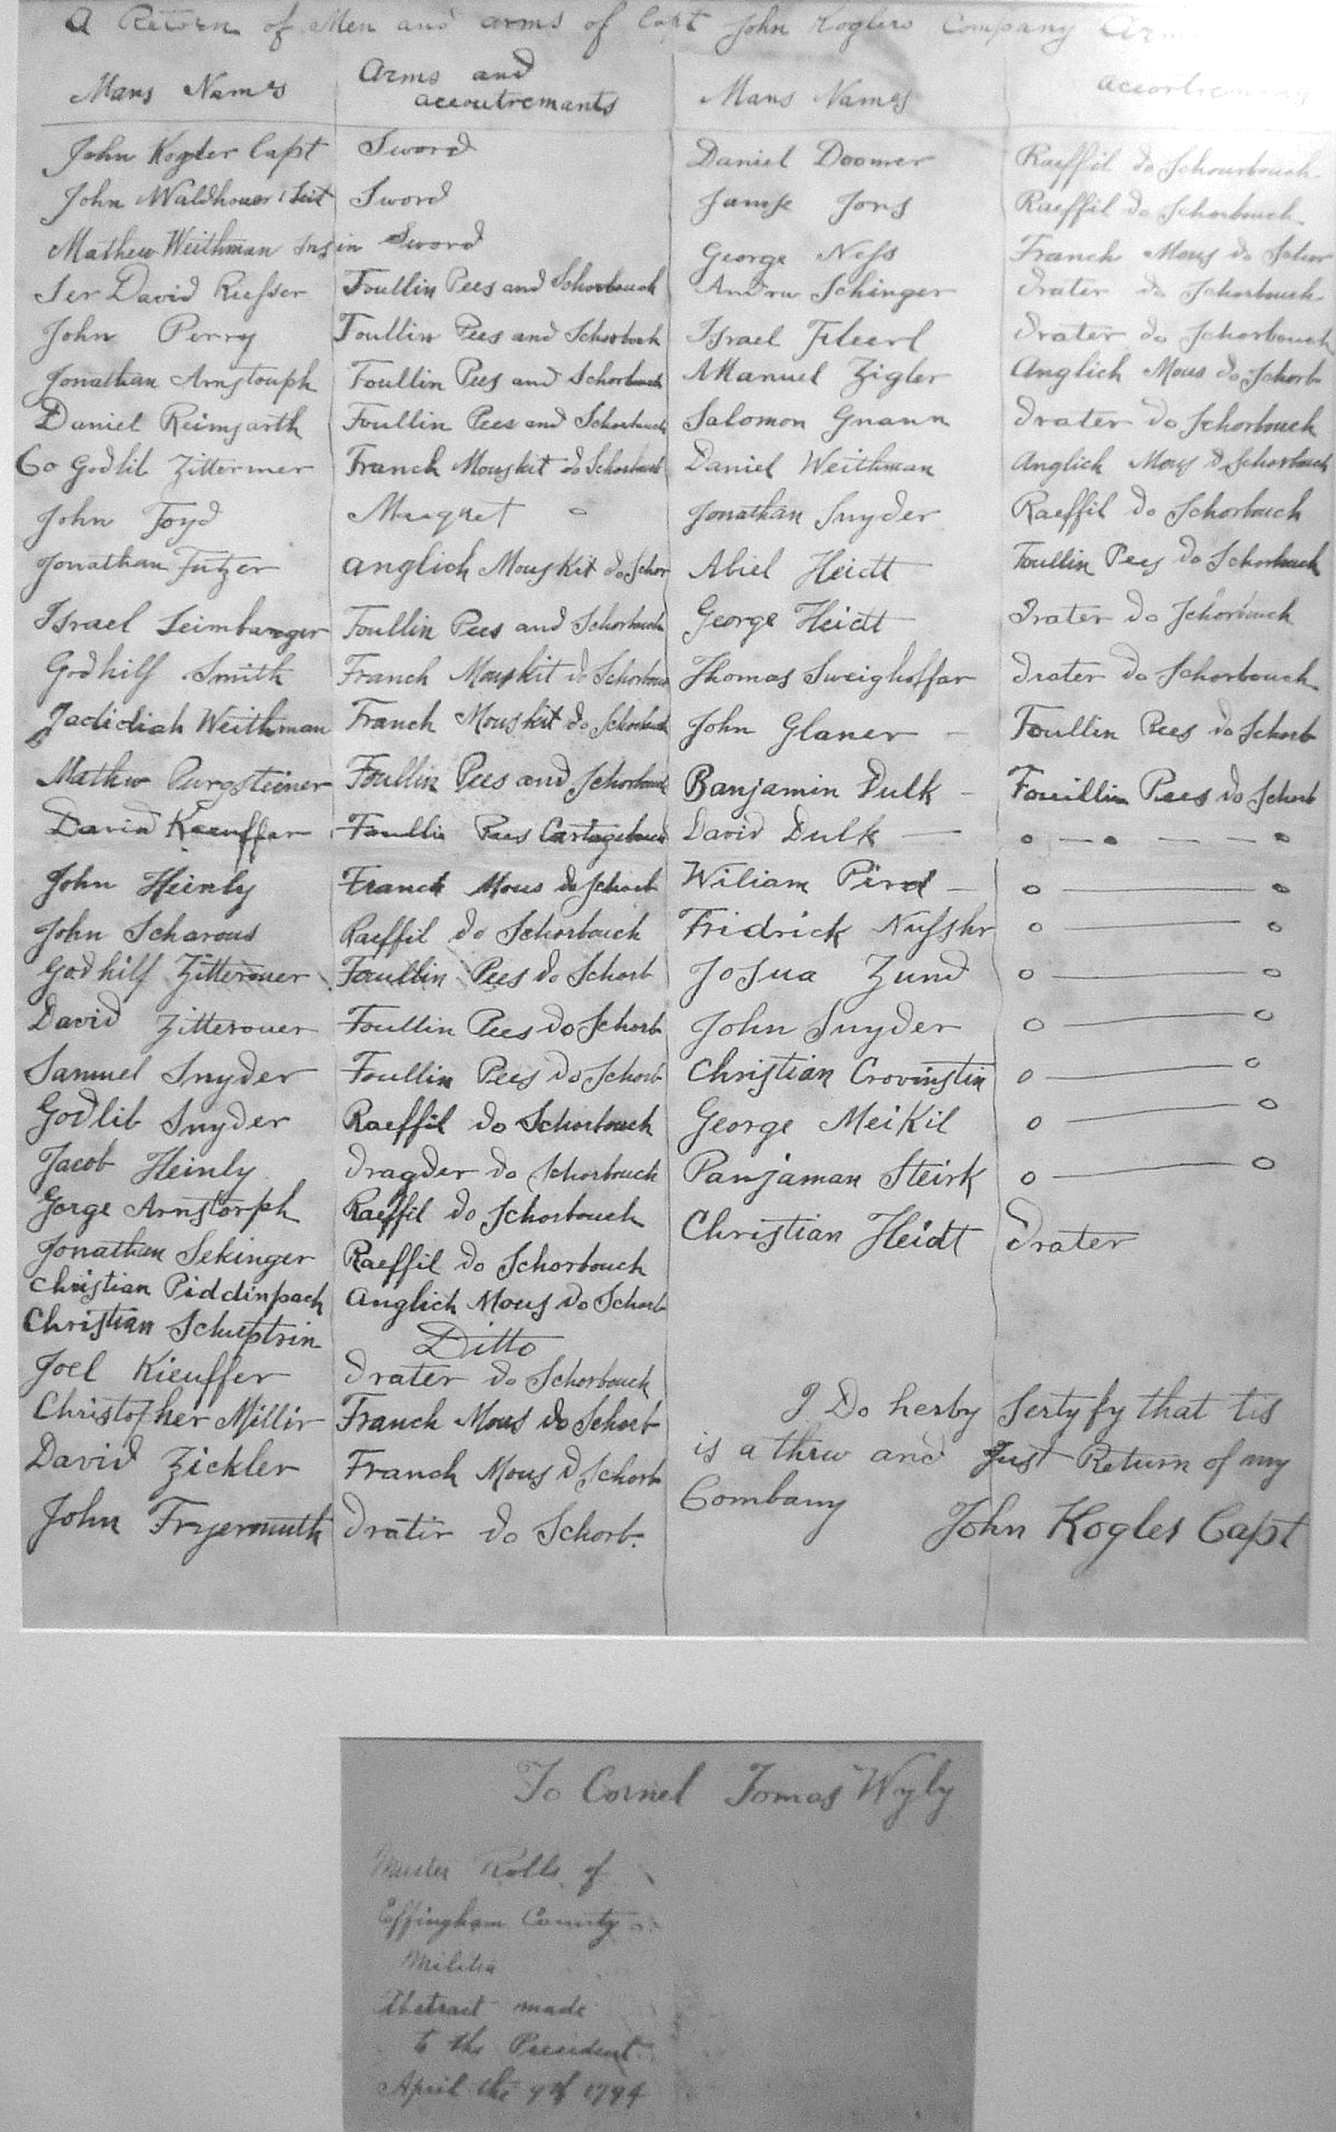 A Retorn of Men and arms of Capt John Koglers Company
Mans Names
Arms and
accoutremants
Mans Names
John Kogler Capt Sword
John Waldhouer Leit Sword
Mathew Weithman Insin Sword
Ser David Riesser Foullin Pees and Schorbouch
John Perry Foullin Pees and Schorboch
Jonathan Arnstouph Foullin Pees and Schorbouch
Daniel Reimsarth Foullin Pees and Schorbouch
Co Godlib Zittermer Franch Mouskit do Schorbouch
John Foyd Musquet o
Jonathan Futzer Anglich Mouskit do Schor
Israel Leimbarger Foullin Pees and Schorbouch
Godhilf Smith Franch Mouskit do Schorbouch
Jadidiah Weithman Franch Mouskit do Schorbuch
Mathew Purgsteiner Foullin Pees and Schorbouch
David Kaeuffer Foullin Pees
John Heinly Franck Mous do Schorb
John Scharous Raeffil do Schorbouch
Godhilf Zitterouer Foullin Pees do Schorb
David Zitterouer Foullin Pees do Schorb
Samuel Snyder Foullin Pees do Schorb
Godlib Snyder Raeffil do Schorbouch
Jacob Heinly Dragder do Schorbouch
Gorge Arnstorph Raeffil do Schorbouch
Jonathan Sekinger Raeffil do Schorbouch
Christian Piddinpach Anglich Mous do Schorb
Christian Schuptrin Ditto
Joel Kieuffer Drater do Schorbouch
Christopher Millir Franch Mous do Schorb
David Zickler Franch Mous do Schorb
John Fryermuth Dratir do Schorb.
Daniel Doomer Raeffil do Schourbouch
Jamse Jons Raeffil do Schorbouch
George Ness Franch Mous do
Andrw Schinger Drater do Schorbouch
Israel Fleerl Drater do Schorbouch
Manuel Zigler Anglich Mous do Schorb
Salomon Gnann Drater do Schorbouch
Daniel Weithman Anglich Mous do Schorbouch
Jonathan Snyder Raeffil do Schorbouch
Abiel Heidt Foullin Pees do Schorbouch
George Heidt Drater do Schorbouch
Thomas Sweighoffar Drater do Schorbouch
John Glaner – Foullin Pees do Schorb
Banjamin Dulk – Fouillin Pees do Schorb
David Dulk — o — o — — o
Wiliam Pird – o — o
Fridrick Nussler o — o
Josua Zund o — o
John Snyder o — o
Christian Crovinstin o — o
George Meikil o — o
Panjaman Steirk o — o
Christian Heidt Drater
I Do herby Sertyfy that tis
is a thrw and Just Return of my
Combany John Kogler Capt
To Cornel Tomas Wyly
Muster Rolls of
Effingham County
Militia
Abstract made
to the President
April the 7th 1794